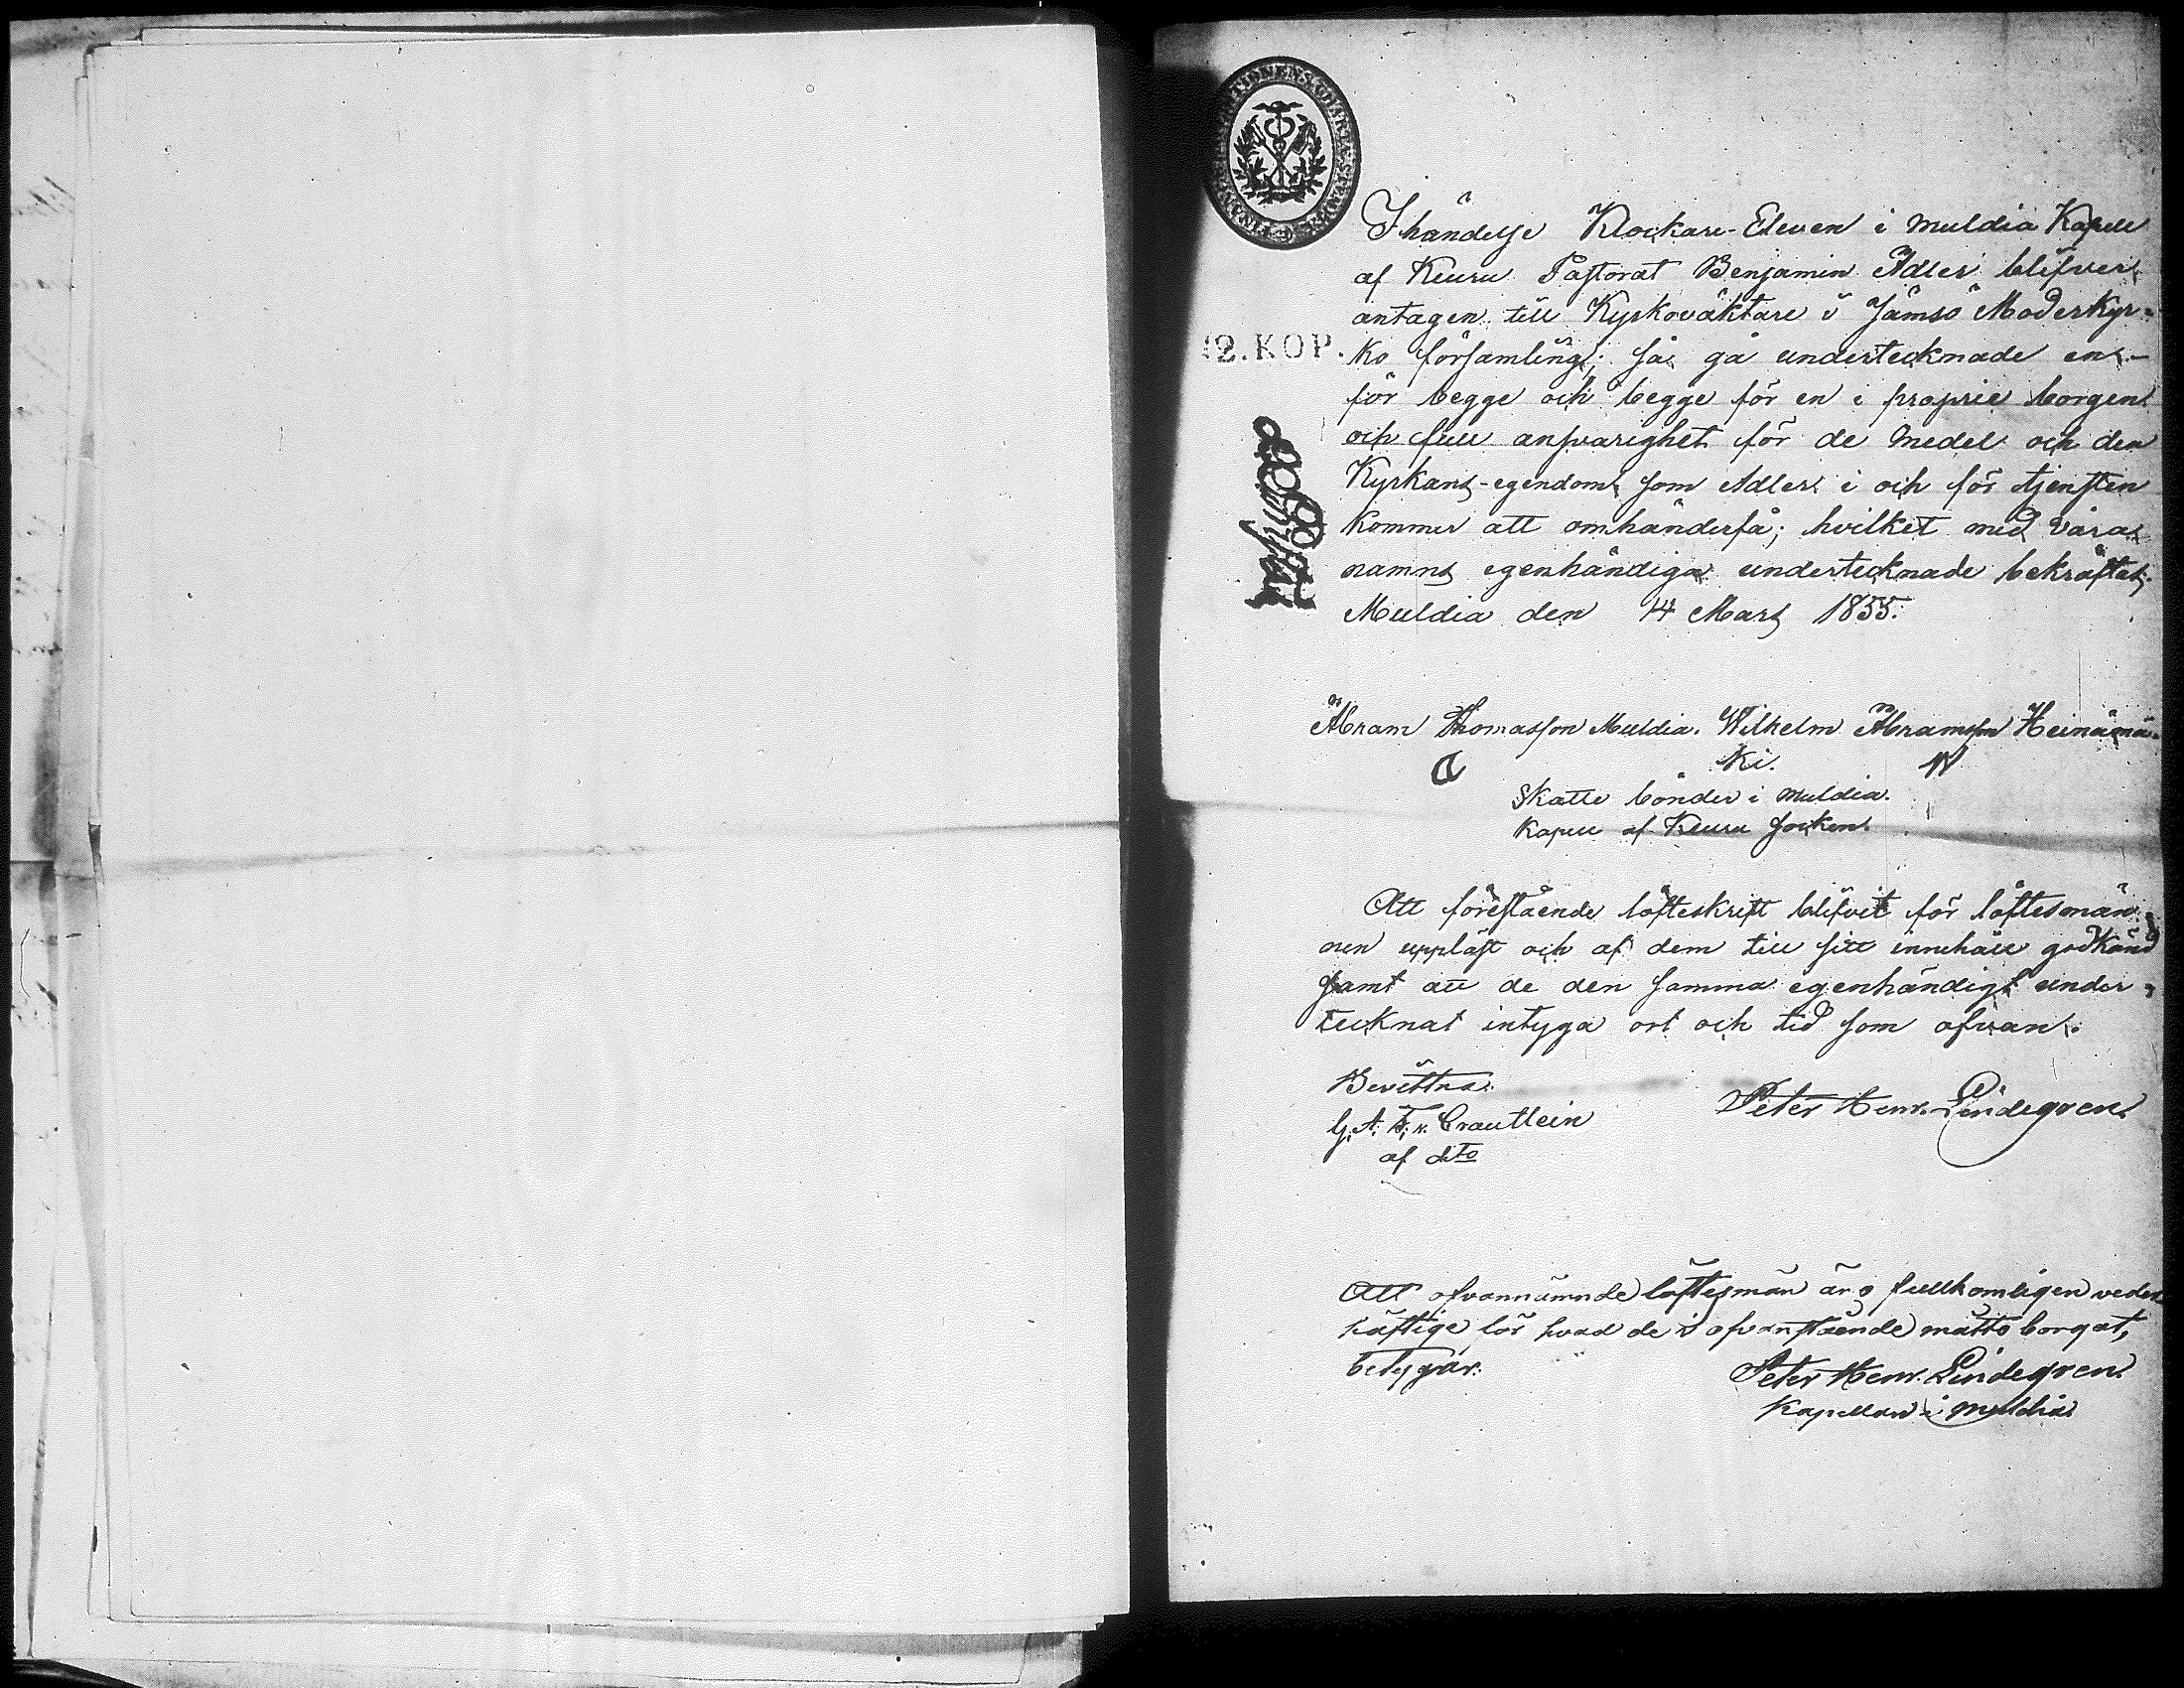 I händelse Klockare-Eleven i Muldia Kapell
af Keuru Pastorat Benjamin Adler blifver
antagen till Kyrkoväktare i Jämsö Moderkyr-
ko församling; så gå undertecknade en-
för begge och begge för en i proprie borgen
och full ansvarighet för de medel och den
Kyrkans-egendom, som Adler i och för tjensten
kommer att omhänderfå; hvilket med våra
namns egenhändiga undertecknade bekräftas;
Muldia den 14 Mars 1855.
12. KOP.
Abram Thomasson Muldia. Wilhelm Abramsson Heinämä-
ki.
Skatte bönder i Muldia
Kapell af Keuru Socken.
Att förestående löfteskrift blifvit för löftesmän-
nen uppläst och af dem till sitt innehåll godkänd
samt att de den samma egenhändigt under-
tecknat intyga ort och tid som ofvan.
Bevittna:
Peter Henr. Lindegren
af dto
Att ofvannämnde löftesmän äro fullkomligen veder
häftige för hvad de i ofvanstående måtto borgat,
betygar:
Peter Henr. Lindegren
Kapellan i Muldia